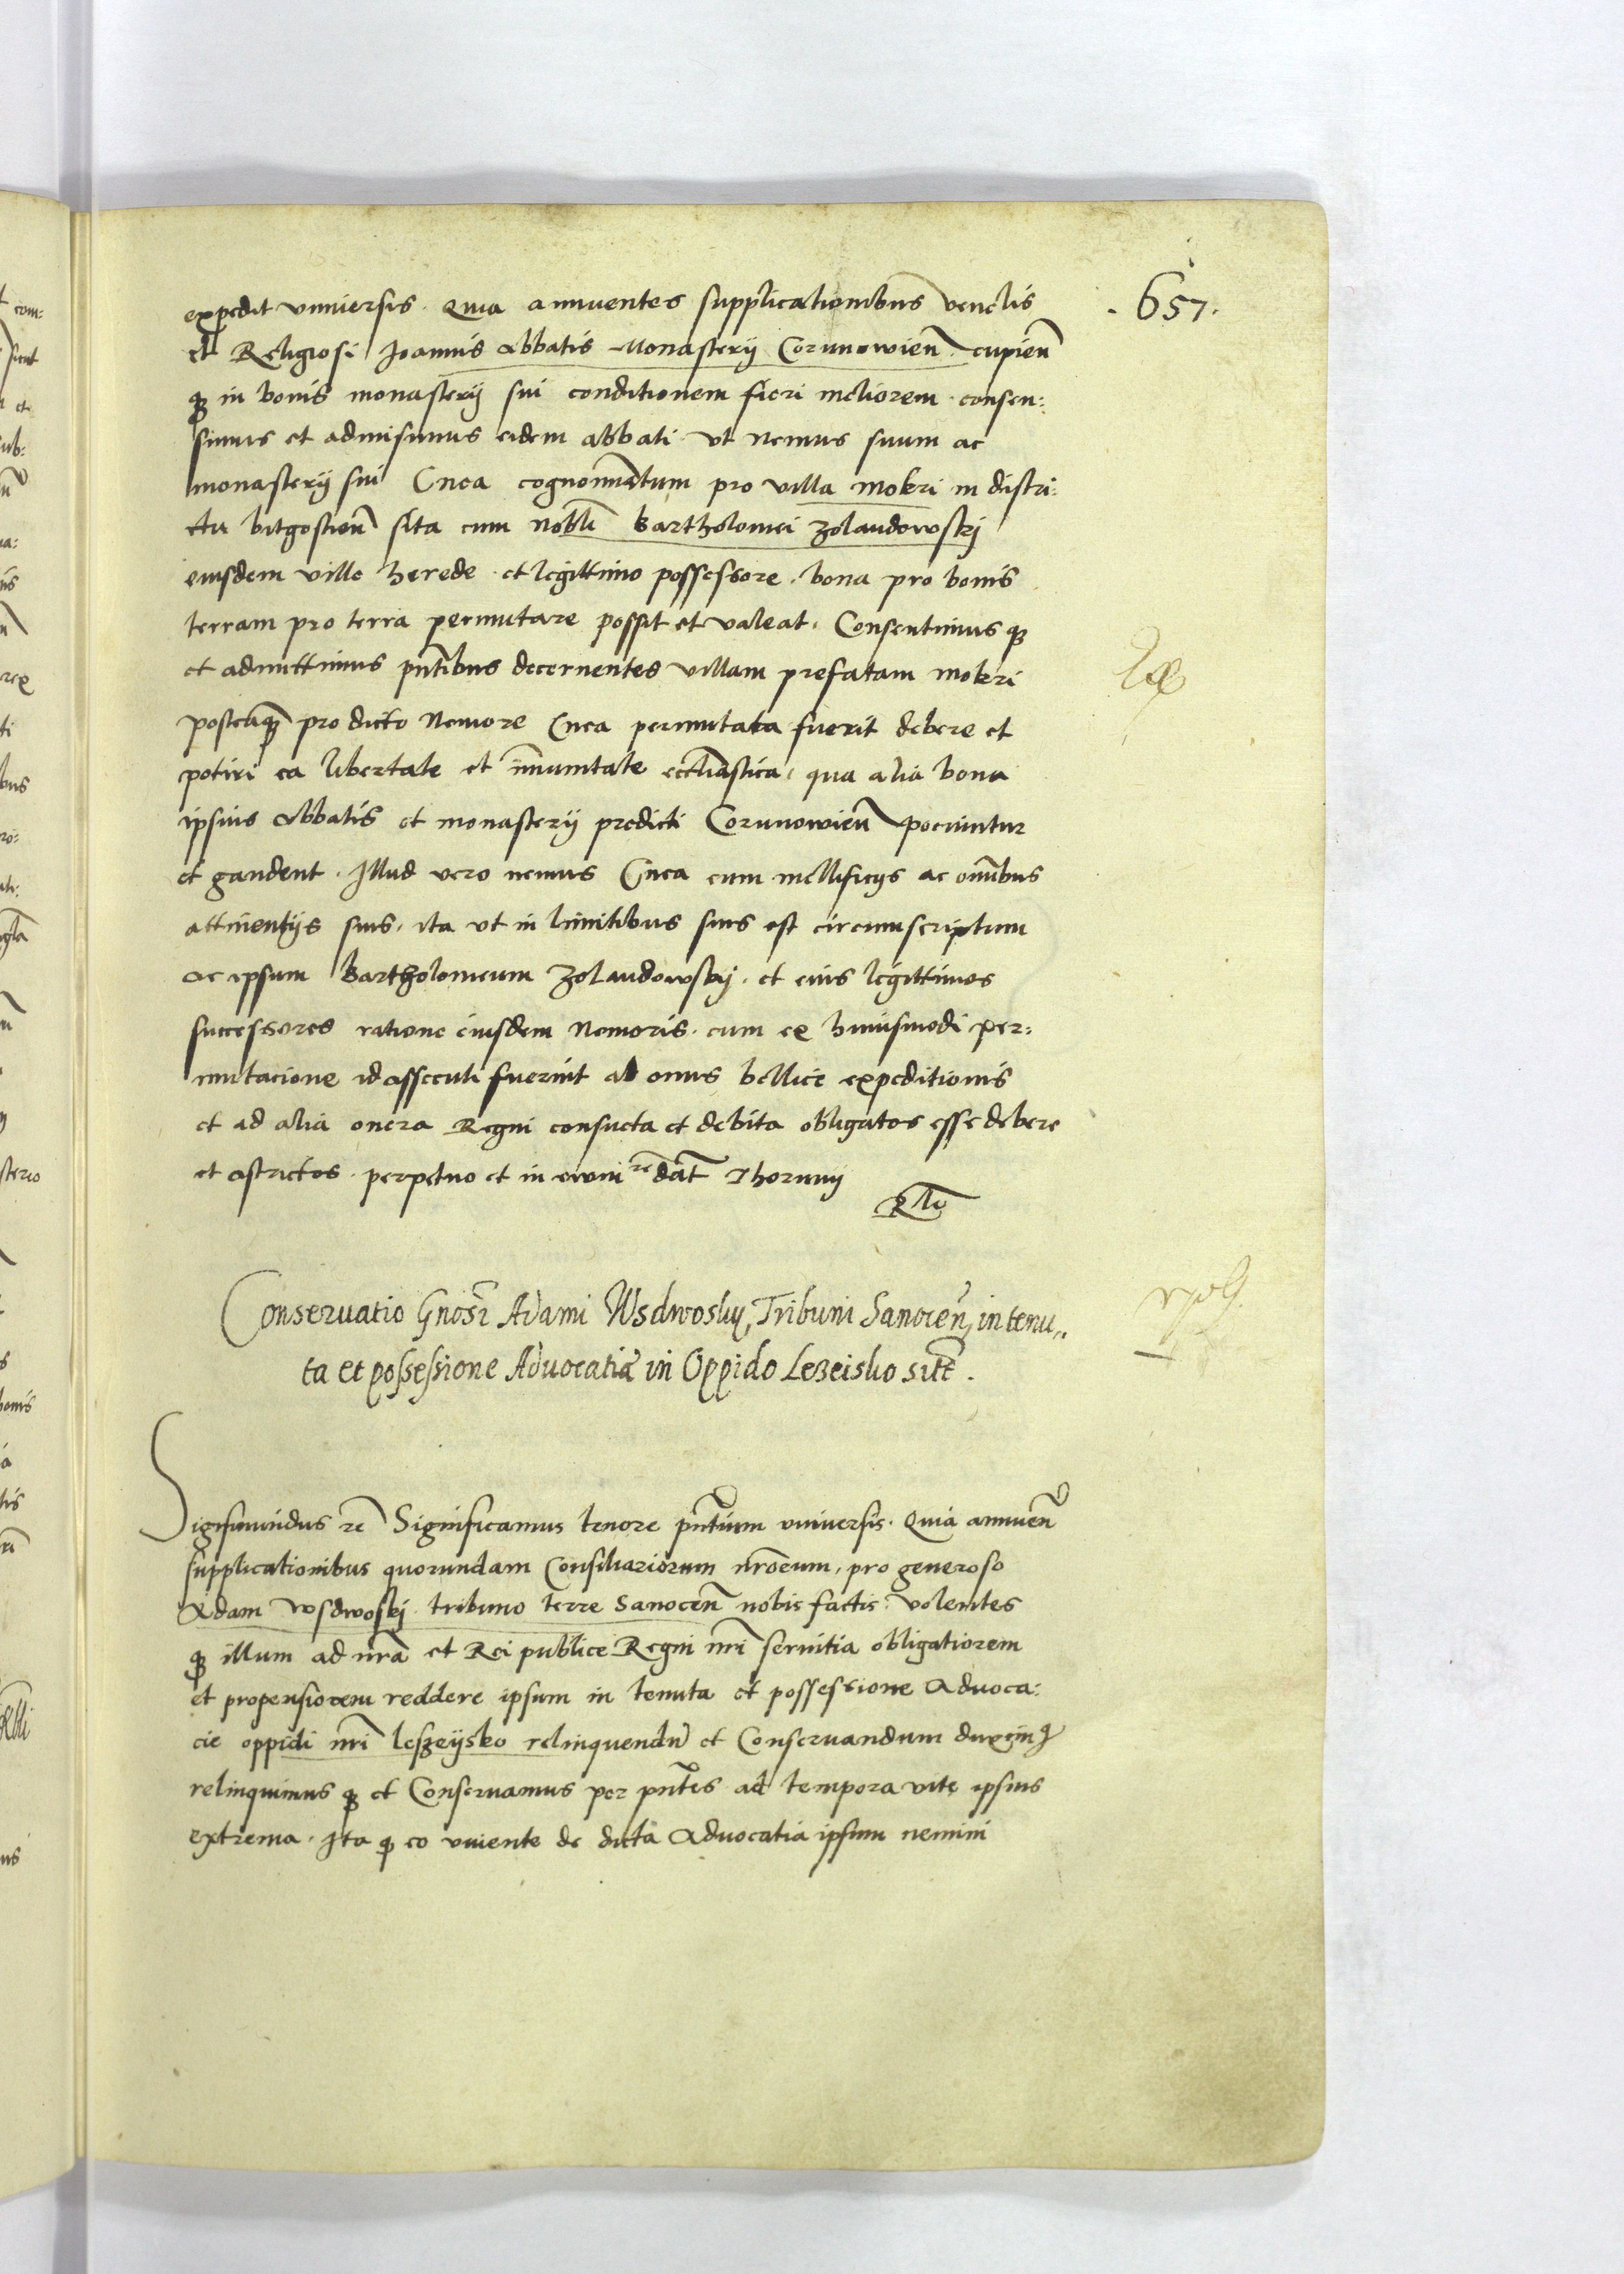 . 657.
expedit vniuersis. Quia annuentes supplicationibus venelis
et Religiosi Joannis Abbatis Monasterij Corunowien̄ cupien̄
qȝ in bonis monasterij sui conditionem fieri meliorem consen:
simus et admisimus eidem abbati vt nemus suum ac
monasterij sui Cnea cognomnātum pro villa mokri in distri:
ctu bitgostien̄ sita cum nobli Bartholomei Zolandowskj
eiusdem ville herede et legittimo possessore. bona pro bonis
terram pro terra permutare possit et valeat. Consentimus qȝ
et admittimus pn̄tibus decernentes villam prefatam mokri
posteaqȝ pro dicto Nemore Cnea permutata fuerit debere et
potiri ea libertate et im̄unitate eccl̄iastica, qua alia bona
ipsius Abbatis et monasterij predicti Corunowien̄ pociuntur
et gaudent. Illud vero nemus Cnea cum mellificijs ac om̄ibus
attinentijs suis, ita vt in limitibus suis est circumscriptum
ac ipsum Bartholomeum Zolandowskj. et eius legittimos
successores ratione eiusdem Nemoris. cum ex huiusmodi per:
mutacione id assecuti fuerint ad onus bellice expeditionis
et ad alia onera Regni consueta et debita obligatos esse debere
et astrictos. perpetuo et in ewm rē dat̄ Thorunij
Conseruatio Gnosi Adami Wsdwosky, Tribuni Sanocen̄, in tenu„
ta et possessione Aduocatiæ in Oppido Lezeisko site̅.
Sigismundus rē Significamus tenore pn̄tium vniuersis. Quia annuen̄
supplicationibus quorundam Consiliariorum nrōrum, pro generoso
Adam Wsdwoskj tribuno terre Sanocen̄ nobis factis. volentes
qȝ illum ad nrā et Rei publice Regni nrī seruitia obligatiorem
et propensiorem reddere ipsum in tenuta et possessione Aduoca:
cie oppidi nrī leszeijsko relinquendū et Conseruandum duximꝰ
relinquimus qȝ et Conseruamus per pn̄tes ad tempora vite ipsius
extrema. Ita qȝ eo viuente de dicta Aduocatia ipsum nemini